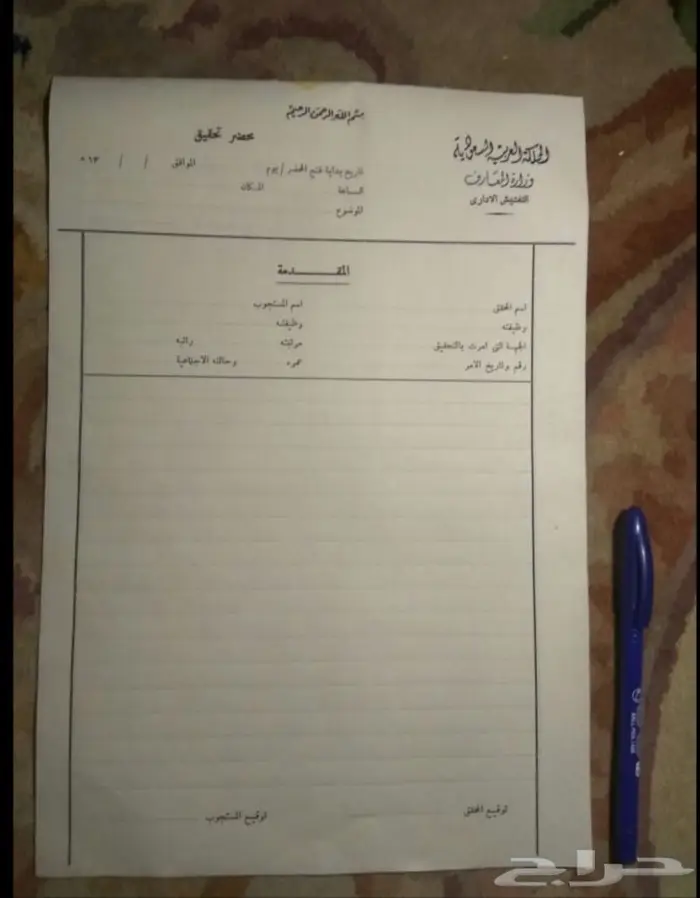 بسم الله الرحمن الرحيم
المملكة العربية السعودية
وزارة المعارف
التفتيش الادارى
محضر تحقيق
تاريخ بداية فتح المحضر / يوم الموافق / / ١٣ ه
الساعة المكان
الموضوع
المقدمة
اسم المحقق اسم المستجوب
وظيفته وظيفته
الجهة التى امرت بالتحقيق مرتبته راتبه
رقم وتاريخ الامر عمره وحالته الاجتماعية
توقيع المحقق توقيع المستجوب
حراج